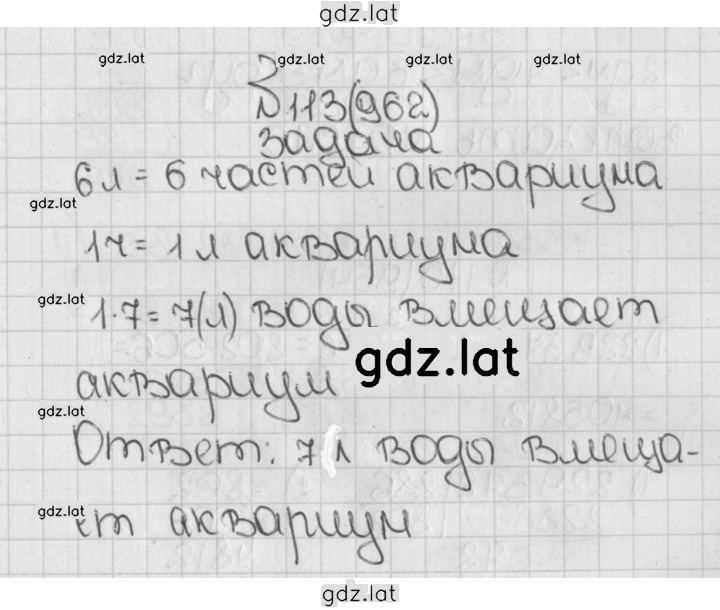 gdz.lat
gdz.lat gdz.lat gdz.lat
№113(962)
задача
6л = 6 частей аквариума
gdz.lat
1ч = 1 л аквариума
gdz.lat
1·7 = 7(л) воды вмещает
gdz.lat
аквариум
gdz.lat
Ответ: 7 л воды вмеща-
gdz.lat
ет аквариум
gdz.lat